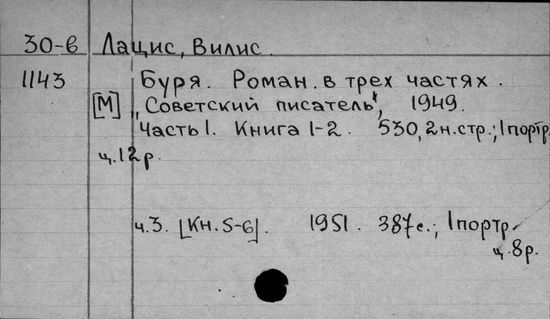 30-6 Лацис, Вилис.
1143 Буря. Роман. в трех частях.
[М] „Советский писатель", 1949.
Часть I. Книга 1-2. 530, 2 н.стр.; 1 портр.
ц. 12 р.
ч.3. [Кн. 5-6]. 1951. 387 с.; 1 портр.
ц. 8 р.